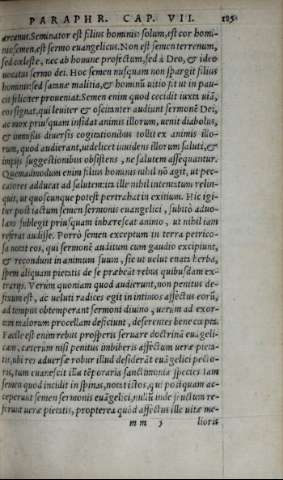 PARAPHR. CAP. VII. 185
arcenus. Seminator est filius hominis: solum, est cor homi-
nis: semen, est sermo euangelicus. Non est semen terrenum,
sed cœleste, nec ab homine profectum, sed à Deo, & ideo
uocatus sermo dei. Hoc semen nusquam non spargit filius
hominis: sed sua malitia, & hominũ uitio fit ut in pau-
cis feliciter proueniat. Semen enim quod cecidit iuxta uiã,
eos signat, qui leuiter & oscitanter audiunt sermonē Dei,
ac mox priusquam insidat animis illorum, uenit diabolus,
& inmissis diuersis cogitationibus tollit ex animis illo-
rum, quod audierant, uidelicet inuidens illorum saluti, &
impijs suggestionibus obsistens, ne salutem assequantur.
Quemadmodum enim filius hominis nihil nõ agit, ut pec-
catores adducat ad salutem: ita ille nihil intentatum relin-
quit, ut quoscunque potest pertrahat in exitium. Hic igi-
tur post iactum semen sermonis euangelici, subitò aduo-
lans sublegit priusquam inhærescat animo, ut nihil iam
referat audisse. Porrò semen exceptum in terra petrico-
sa notat eos, qui sermonē auditum cum gaudio excipiunt,
& recondunt in animum suum, sic ut uelut enata herba,
spem aliquam pietatis de se præbeāt rebus quibusdam ex-
trarijs. Verùm quoniam quod audierunt, non penitus de-
fixum est, ac ueluti radices egit in intimos affectus eorũ,
ad tempus obtemperant sermoni diuino, uerum ad exor-
tam malorum procellam deficiunt, deserentes bene cœpta.
Facile est enim rebus prosperis seruare doctrinã euãgeli-
cam, cæterum nisi penitus imbiberis affectum ueræ pieta-
tis, ubi res aduersæ robur illud desiderāt euãgelici pecto-
ris, tum euanescit illa tēporaria sanctimoniæ species. Iam
semen quod incidit in spinas, notat istos, qui postquam ac-
ceperunt semen sermonis euãgelici, nullũ inde fructum re-
ferunt ueræ pietatis, propterea quòd affectus ille uitæ me-
mm 3 lioris